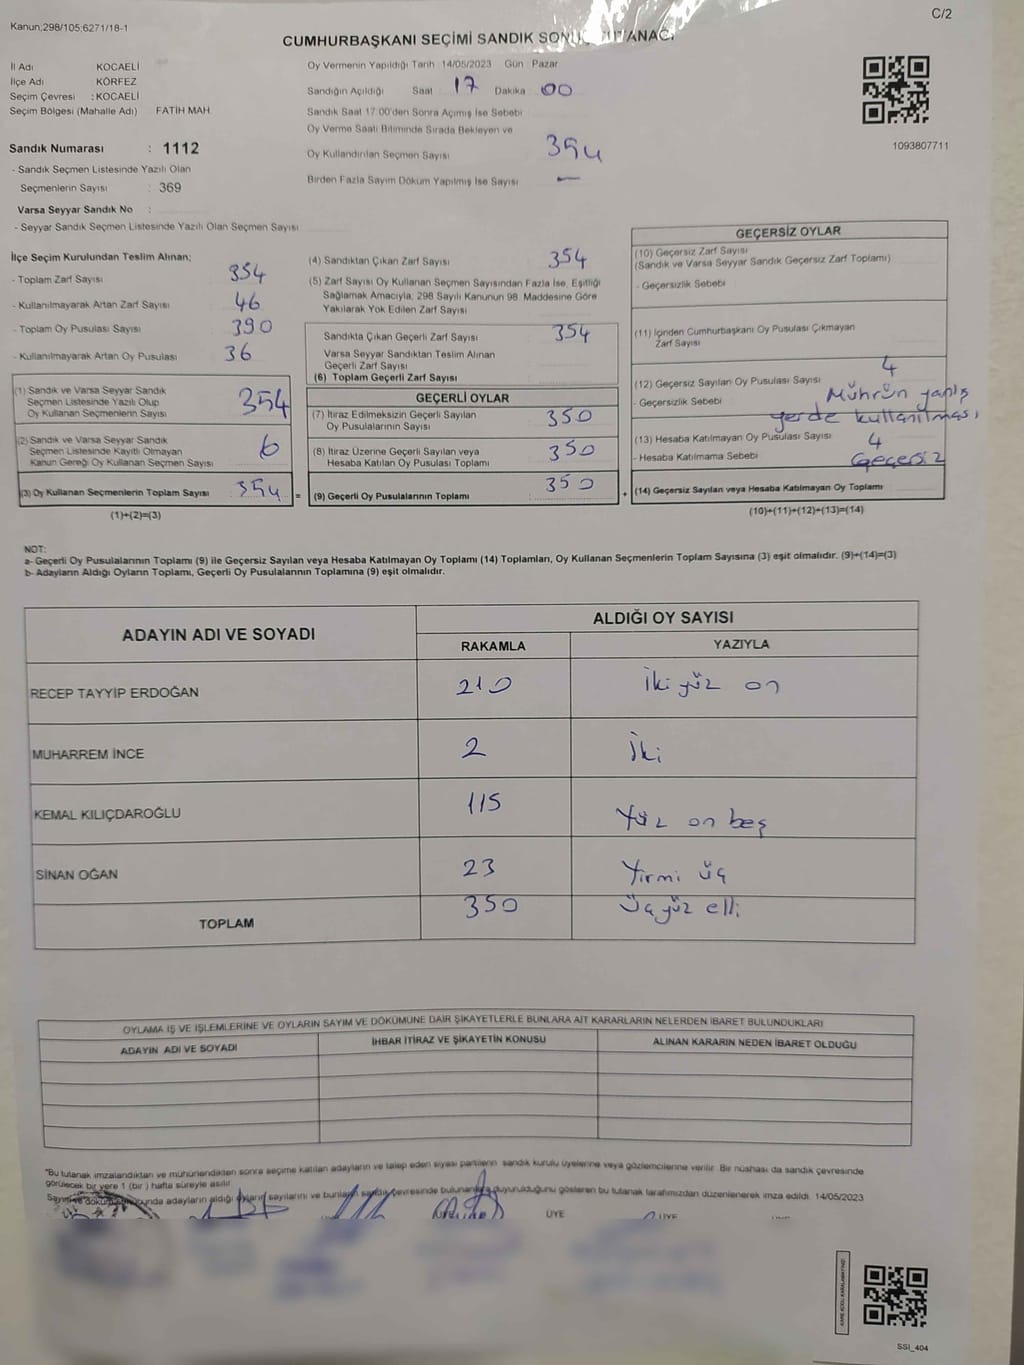 C/2
Kanun;298/105;6271/18-1
CUMHURBAŞKANI SEÇİMİ SANDIK
İl Adı KOCAELİ
İlçe Adı KÖRFEZ
Seçim Çevresi : KOCAELİ
Seçim Bölgesi (Mahalle Adı) FATİH MAH
Sandık Numarası : 1112
- Sandık Seçmen Listesinde Yazılı Olan
Seçmenlerin Sayısı : 369
Varsa Seyyar Sandık No :
- Seyyar Sandık Seçmen Listesinde Yazılı Olan Seçmen Sayısı
Oy Vermenin Yapıldığı Tarih 14/05/2023 Gün Pazar
Sandığın Açıldığı Saat 17 Dakika 00
Sandık Saat 17:00'den Sonra Açımış İse Sebebi
Oy Verme Saati Bitiminde Sırada Bekleyen ve
Oy Kullandırılan Seçmen Sayısı 354
Birden Fazla Sayım Döküm Yapılmış İse Sayısı —
1093807711
İlçe Seçim Kurulundan Teslim Alınan;
- Toplam Zarf Sayısı 354
- Kullanılmayarak Artan Zarf Sayısı 46
- Toplam Oy Pusulası Sayısı 390
- Kullanılmayarak Artan Oy Pusulası 36
(1) Sandık ve Varsa Seyyar Sandık
Seçmen Listesinde Yazılı Olup
Oy Kullanan Seçmenlerin Sayısı 354
(2) Sandık ve Varsa Seyyar Sandık
Seçmen Listesinde Kayıtlı Olmayan
Kanun Gereği Oy Kullanan Seçmen Sayısı
(3) Oy Kullanan Seçmenlerin Toplam Sayısı 354 =
(1)+(2)=(3)
(4) Sandıktan Çıkan Zarf Sayısı 354
(5) Zarf Sayısı Oy Kullanan Seçmen Sayısından Fazla İse, Eşitliği
Sağlamak Amacıyla, 298 Sayılı Kanunun 98. Maddesine Göre
Yakılarak Yok Edilen Zarf Sayısı
Sandıkta Çıkan Geçerli Zarf Sayısı 354
Varsa Seyyar Sandıktan Teslim Alınan
Geçerli Zarf Sayısı
(6) Toplam Geçerli Zarf Sayısı
GEÇERLİ OYLAR
(7) İtiraz Edilmeksizin Geçerli Sayılan
Oy Pusulalarının Sayısı 350
(8) İtiraz Üzerine Geçerli Sayılan veya
Hesaba Katılan Oy Pusulası Toplamı 350
(9) Geçerli Oy Pusulalarının Toplamı 350 +
GEÇERSİZ OYLAR
(10) Geçersiz Zarf Sayısı
(Sandık ve Varsa Seyyar Sandık Geçersiz Zarf Toplamı)
- Geçersizlik Sebebi
(11) İçinden Cumhurbaşkanı Oy Pusulası Çıkmayan
Zarf Sayısı
(12) Geçersiz Sayılan Oy Pusulası Sayısı 4
- Geçersizlik Sebebi Mührün yanlış
yerde kullanılması
(13) Hesaba Katılmayan Oy Pusulası Sayısı 4
- Hesaba Katılmama Sebebi Geçersiz
(14) Geçersiz Sayılan veya Hesaba Katılmayan Oy Toplamı
(10)+(11)+(12)+(13)=(14)
NOT:
a- Geçerli Oy Pusulalarının Toplamı (9) ile Geçersiz Sayılan veya Hesaba Katılmayan Oy Toplamı (14) Toplamları, Oy Kullanan Seçmenlerin Toplam Sayısına (3) eşit olmalıdır. (9)+(14)=(3)
b- Adayların Aldığı Oyların Toplamı, Geçerli Oy Pusulalarının Toplamına (9) eşit olmalıdır.
ADAYIN ADI VE SOYADI ALDIĞI OY SAYISI
RAKAMLA YAZIYLA
RECEP TAYYİP ERDOĞAN 210 İki yüz on
MUHARREM İNCE 2 İki
KEMAL KILIÇDAROĞLU 115 Yüz on beş
SİNAN OĞAN 23 Yirmi üç
TOPLAM 350 Üçyüz elli
OYLAMA İŞ VE İŞLEMLERİNE VE OYLARIN SAYIM VE DÖKÜMÜNE DAİR ŞİKAYETLERLE BUNLARA AİT KARARLARIN NELERDEN İBARET BULUNDUKLARI
ADAYIN ADI VE SOYADI İHBAR İTİRAZ VE ŞİKAYETİN KONUSU ALINAN KARARIN NEDEN İBARET OLDUĞU
"Bu tutanak imzalandıktan ve mühürlendikten sonra seçime katılan adayların ve talep eden siyasi partilerin sandık kurulu üyelerine veya gözlemcilerine verilir. Bir nüshası da sandık çevresinde
görülecek bir yere 1 (bir ) hafta süreyle asılır.
adayların aldığı oyların sayılarını ve bunların sandık çevresinde duyurulduğunu gösteren bu tutanak tarafımızdan düzenlenerek imza edildi. 14/05/2023
ÜYE ÜYE
SSI_404